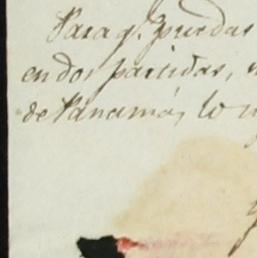 Para q. puedas
en dos partidas,
de Panamá, lo